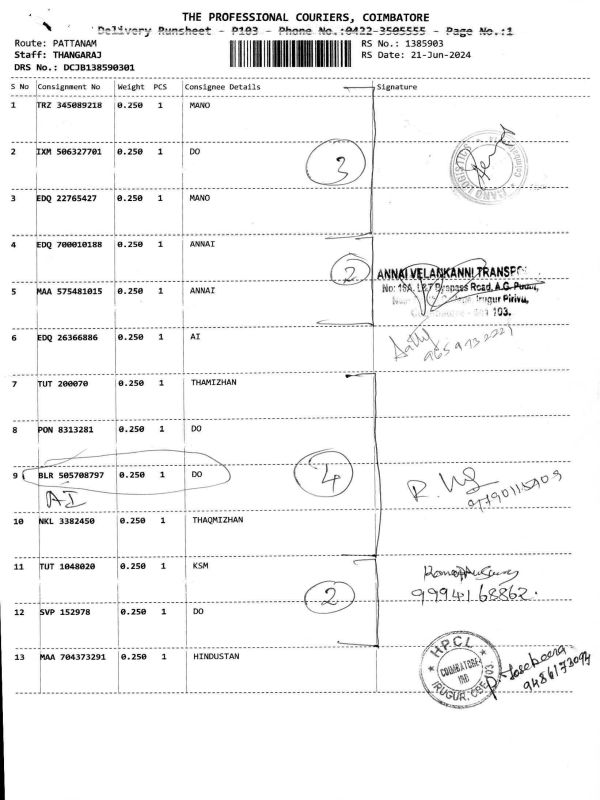 THE PROFESSIONAL COURIERS, COIMBATORE
Delivery Runsheet - P103 - Phone No.:0422-3505555 - Page No.:1
Route: PATTANAM
RS No.: 1385903
Staff: THANGARAJ
RS Date: 21-Jun-2024
DRS No.: DCJB138590301
S No Consignment No Weight PCS Consignee Details Signature
1 TRZ 345089218 0.250 1 MANO
2 IXM 506327701 0.250 1 DO
3
3 EDQ 22765427 0.250 1 MANO
4 EDQ 700010188 0.250 1 ANNAI
2
ANNAI VELANKANNI TRANSPO
No: 18A, L&T Bypass Road, A.G. Pudur,
Irugur Pirivu,
103.
5 MAA 575481015 0.250 1 ANNAI
6 EDQ 26366886 0.250 1 AI
7 TUT 200070 0.250 1 THAMIZHAN
8 PON 8313281 0.250 1 DO
9 BLR 505708797 0.250 1 DO
4
AI
10 NKL 3382450 0.250 1 THAQMIZHAN
11 TUT 1048020 0.250 1 KSM
2
99941 68862.
12 SVP 152978 0.250 1 DO
13 MAA 704373291 0.250 1 HINDUSTAN
HPCL
COIMBATORE
IRD
IRUGUR, CBE 103
9486173094